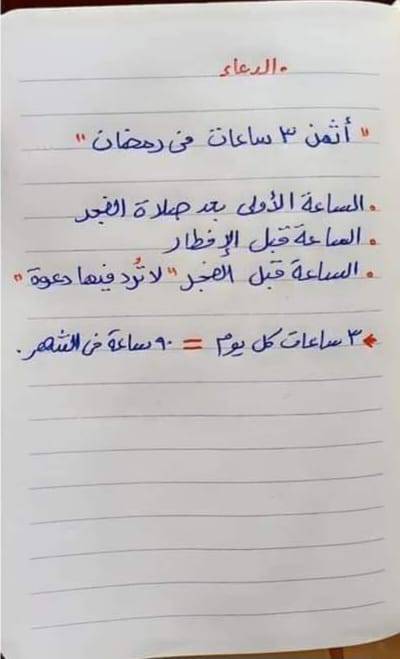 • الدعاء
" أثمن ٣ ساعات فى رمضان "
• الساعة الأولى بعد صلاة الفجر
• الساعة قبل الإفطار
• الساعة قبل الفجر " لا تُرد فيها دعوة "
٣ ساعات كل يوم = ٩٠ ساعة فى الشهر .